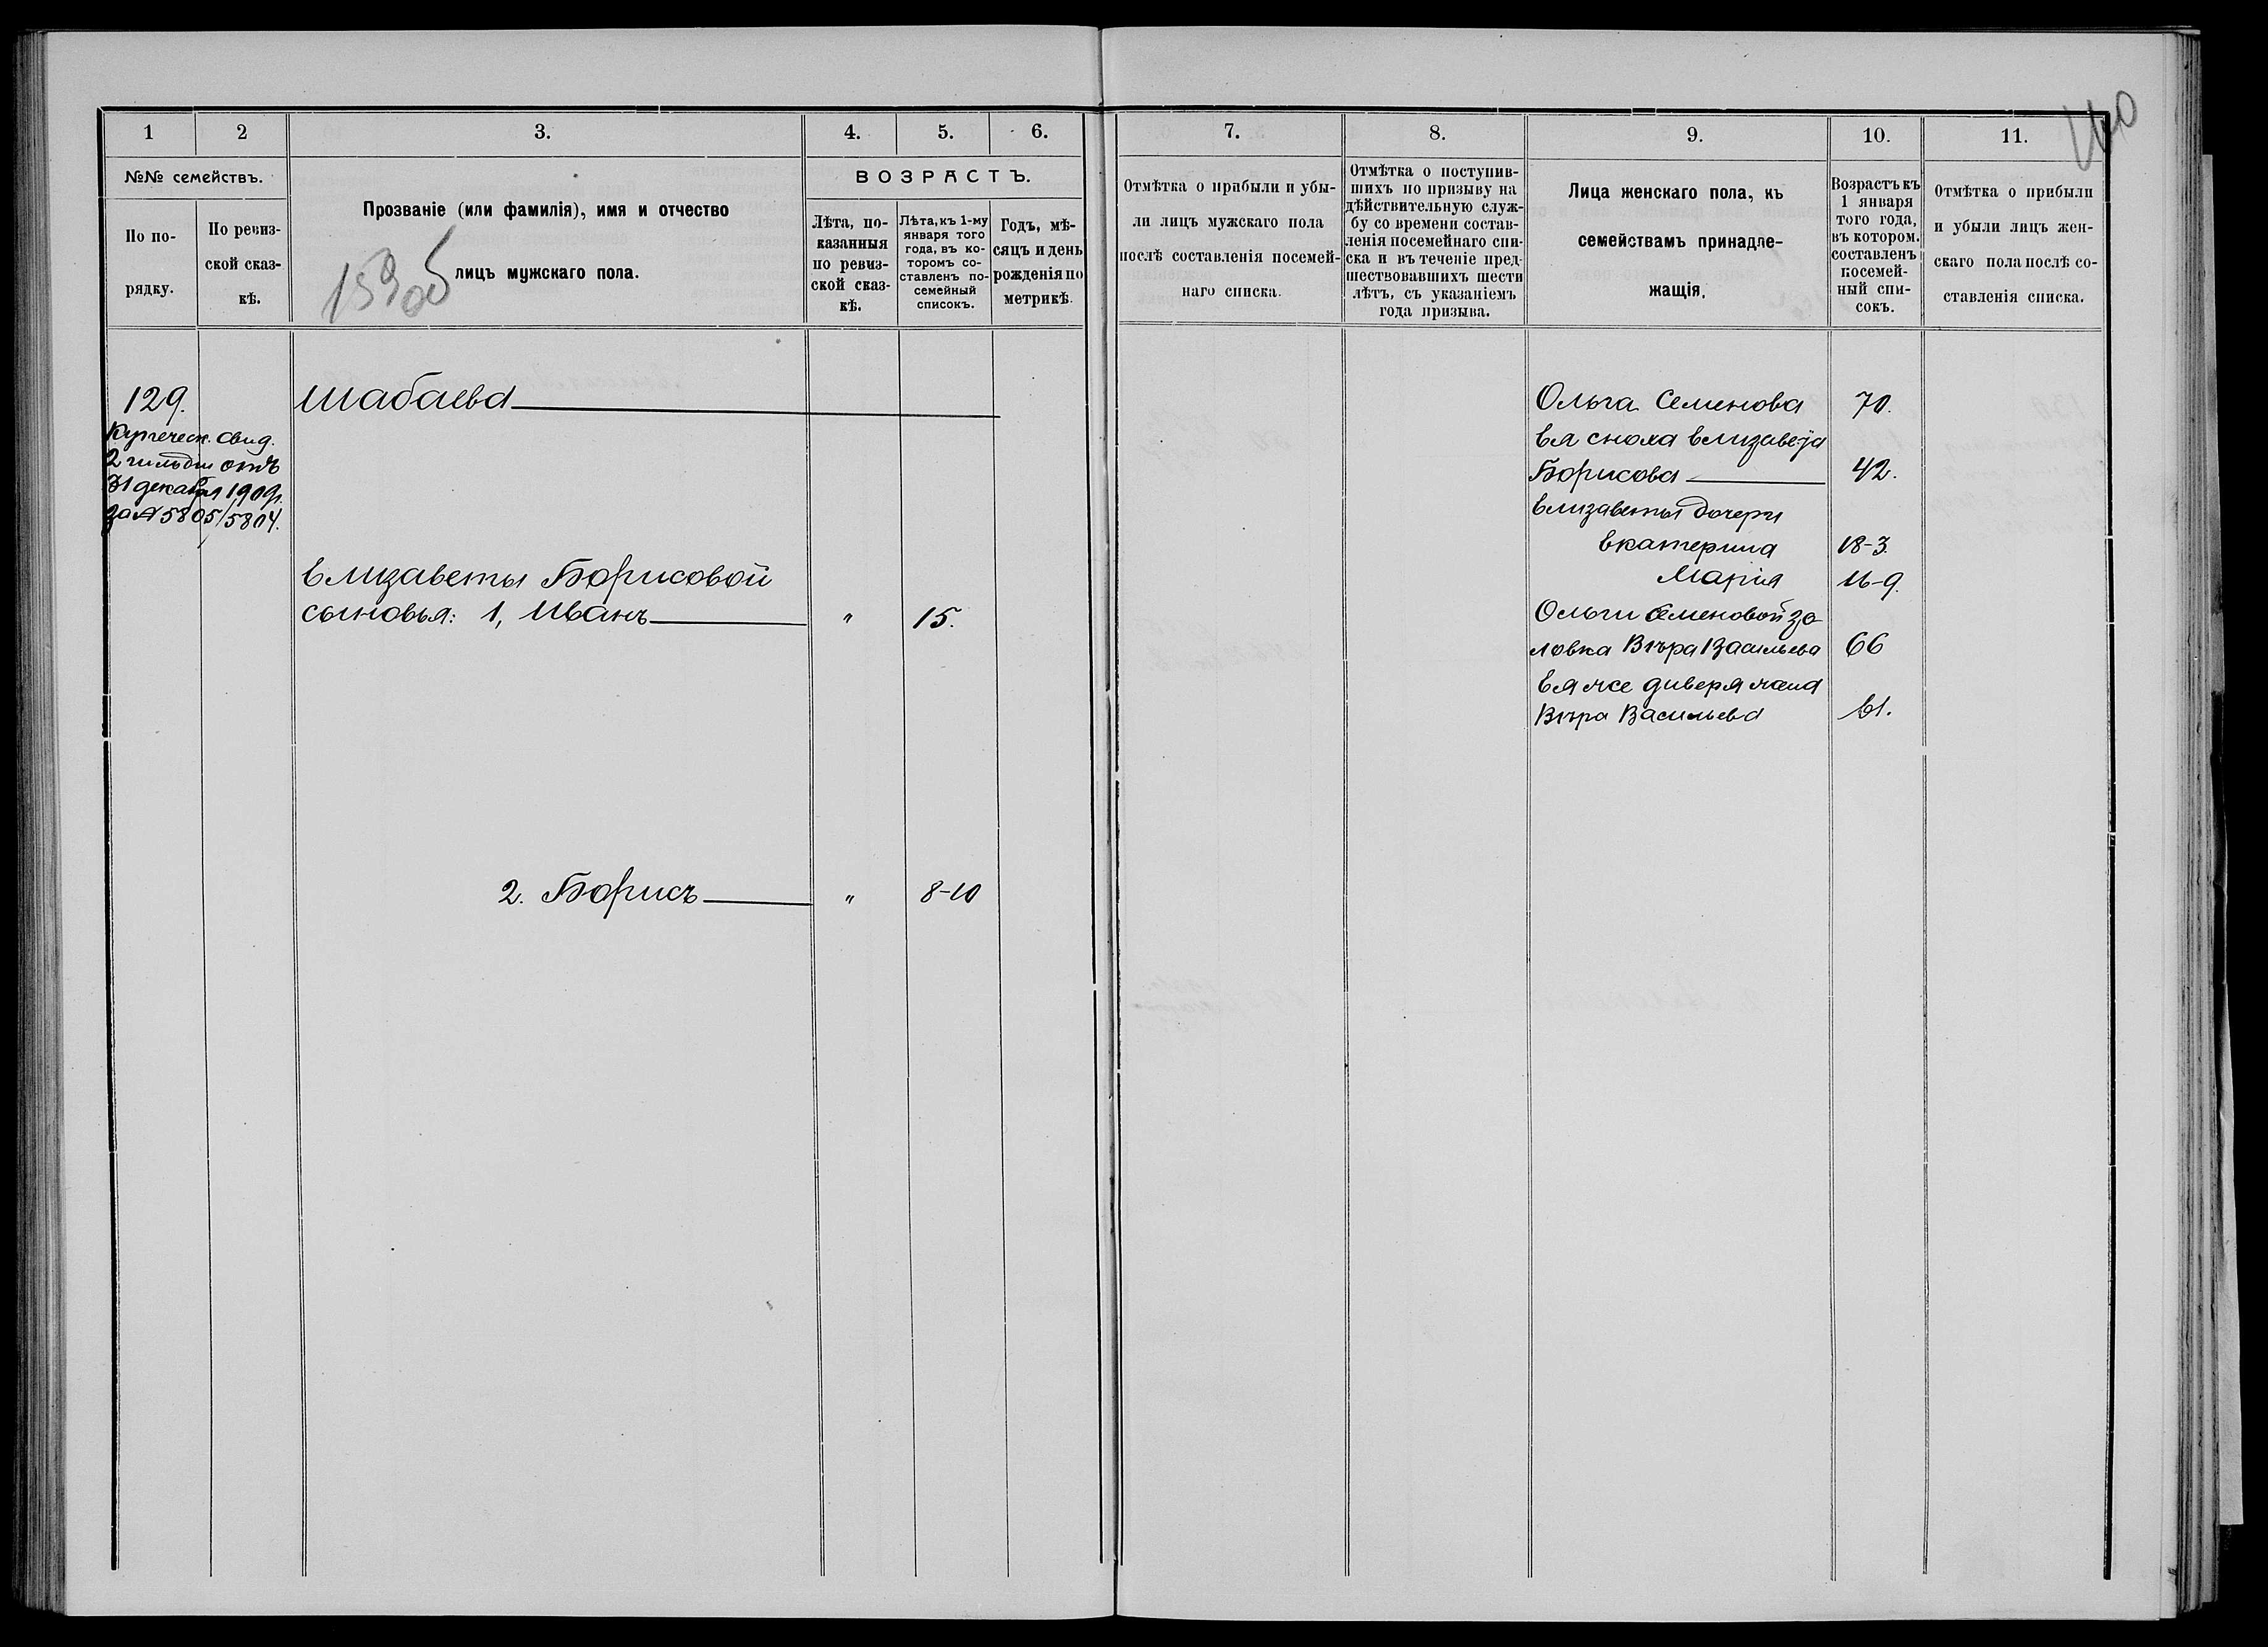 140
1 2 3. 4. 5. 6.
№№ семействъ.
По по-
рядку.
По ревиз-
ской сказ-
кѣ.
Прозваніе (или фамилія), имя и отчество
лицъ мужскаго пола.
ВОЗРАСТЪ.
Лѣта, по-
казанныя
по ревиз-
ской сказ-
кѣ.
Лѣта, къ 1-му
января того
года, въ ко-
торомъ со-
ставленъ по-
семейный
списокъ.
Годъ, мѣ-
сяцъ и день
рожденія по
метрикѣ.
129.
Купеческ. свид.
2 гильдіи отъ
31 декабря 1909г.
за № 5805/5804.
Шабаева
Елизаветы Борисовой
сыновья: 1, Иванъ " 15.
2. Борисъ " 8-10
7. 8. 9. 10. 11.
Отмѣтка о прибыли и убы-
ли лицъ мужскаго пола
послѣ составленія посемей-
наго списка.
Отмѣтка о поступив-
шихъ по призыву на
дѣйствительную служ-
бу со времени состав-
ленія посемейнаго спи-
ска и въ теченіе пред-
шествовавшихъ шести
лѣтъ, съ указаніемъ
года призыва.
Лица женскаго пола, къ
семействамъ принадле-
жащія.
Возрастъ къ
1 января
того года,
въ котором.
составленъ
посемей-
ный спи-
сокъ.
Отмѣтка о прибыли
и убыли лицъ жен-
скаго пола послѣ со-
ставленія списка.
Ольга Семенова 70.
Ея сноха Елизавета
Борисова 42.
Елизаветы дочери
Екатерина 18-3.
Марія 16-9.
Ольги Семеновой зо-
ловка Вѣра Васильева 66
Ея же диверя жена
Вѣра Васильева 61.